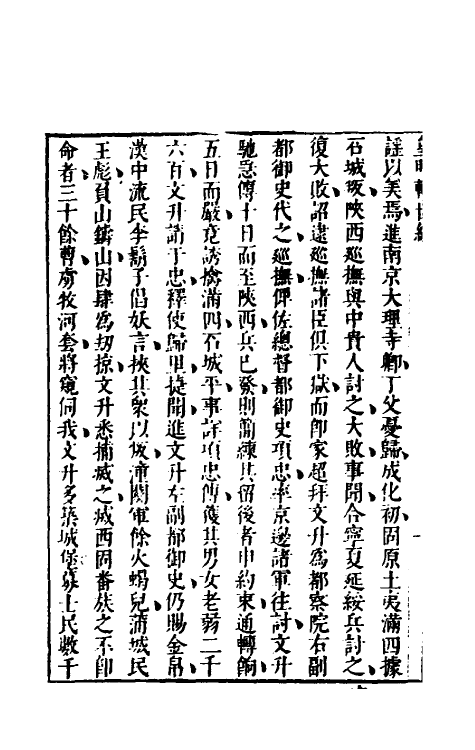 皇明輔世編
謡以美焉進南京大理寺卿丁父憂歸成化初固原土夷滿四據
石城叛陝西巡撫與中貴人討之大敗事聞合寧夏延綏兵討之
復大敗詔逮巡撫諸臣俱下獄而卽家超拜文升爲都察院右副
都御史代之巡撫俾佐總督都御史項忠率京邊諸軍往討文升
馳急傳十日而至陝西兵已發則簡練其留後者申約束通轉餉
五日而嚴竟誘擒滿四石城平事詳項忠傳獲其男女老弱二千
六百文升請于忠釋使歸里捷聞進文升左副都御史仍賜金帛
漢中流民李鬍子倡妖言挾其衆以城潼關軍餘火蝎兒蒲城民
王彪負山鑄山因肆爲刼掠文升悉捕滅之城西固番族之不卽
命者三十餘曹虜牧河套將窺伺我文升多築城堡募士民數千